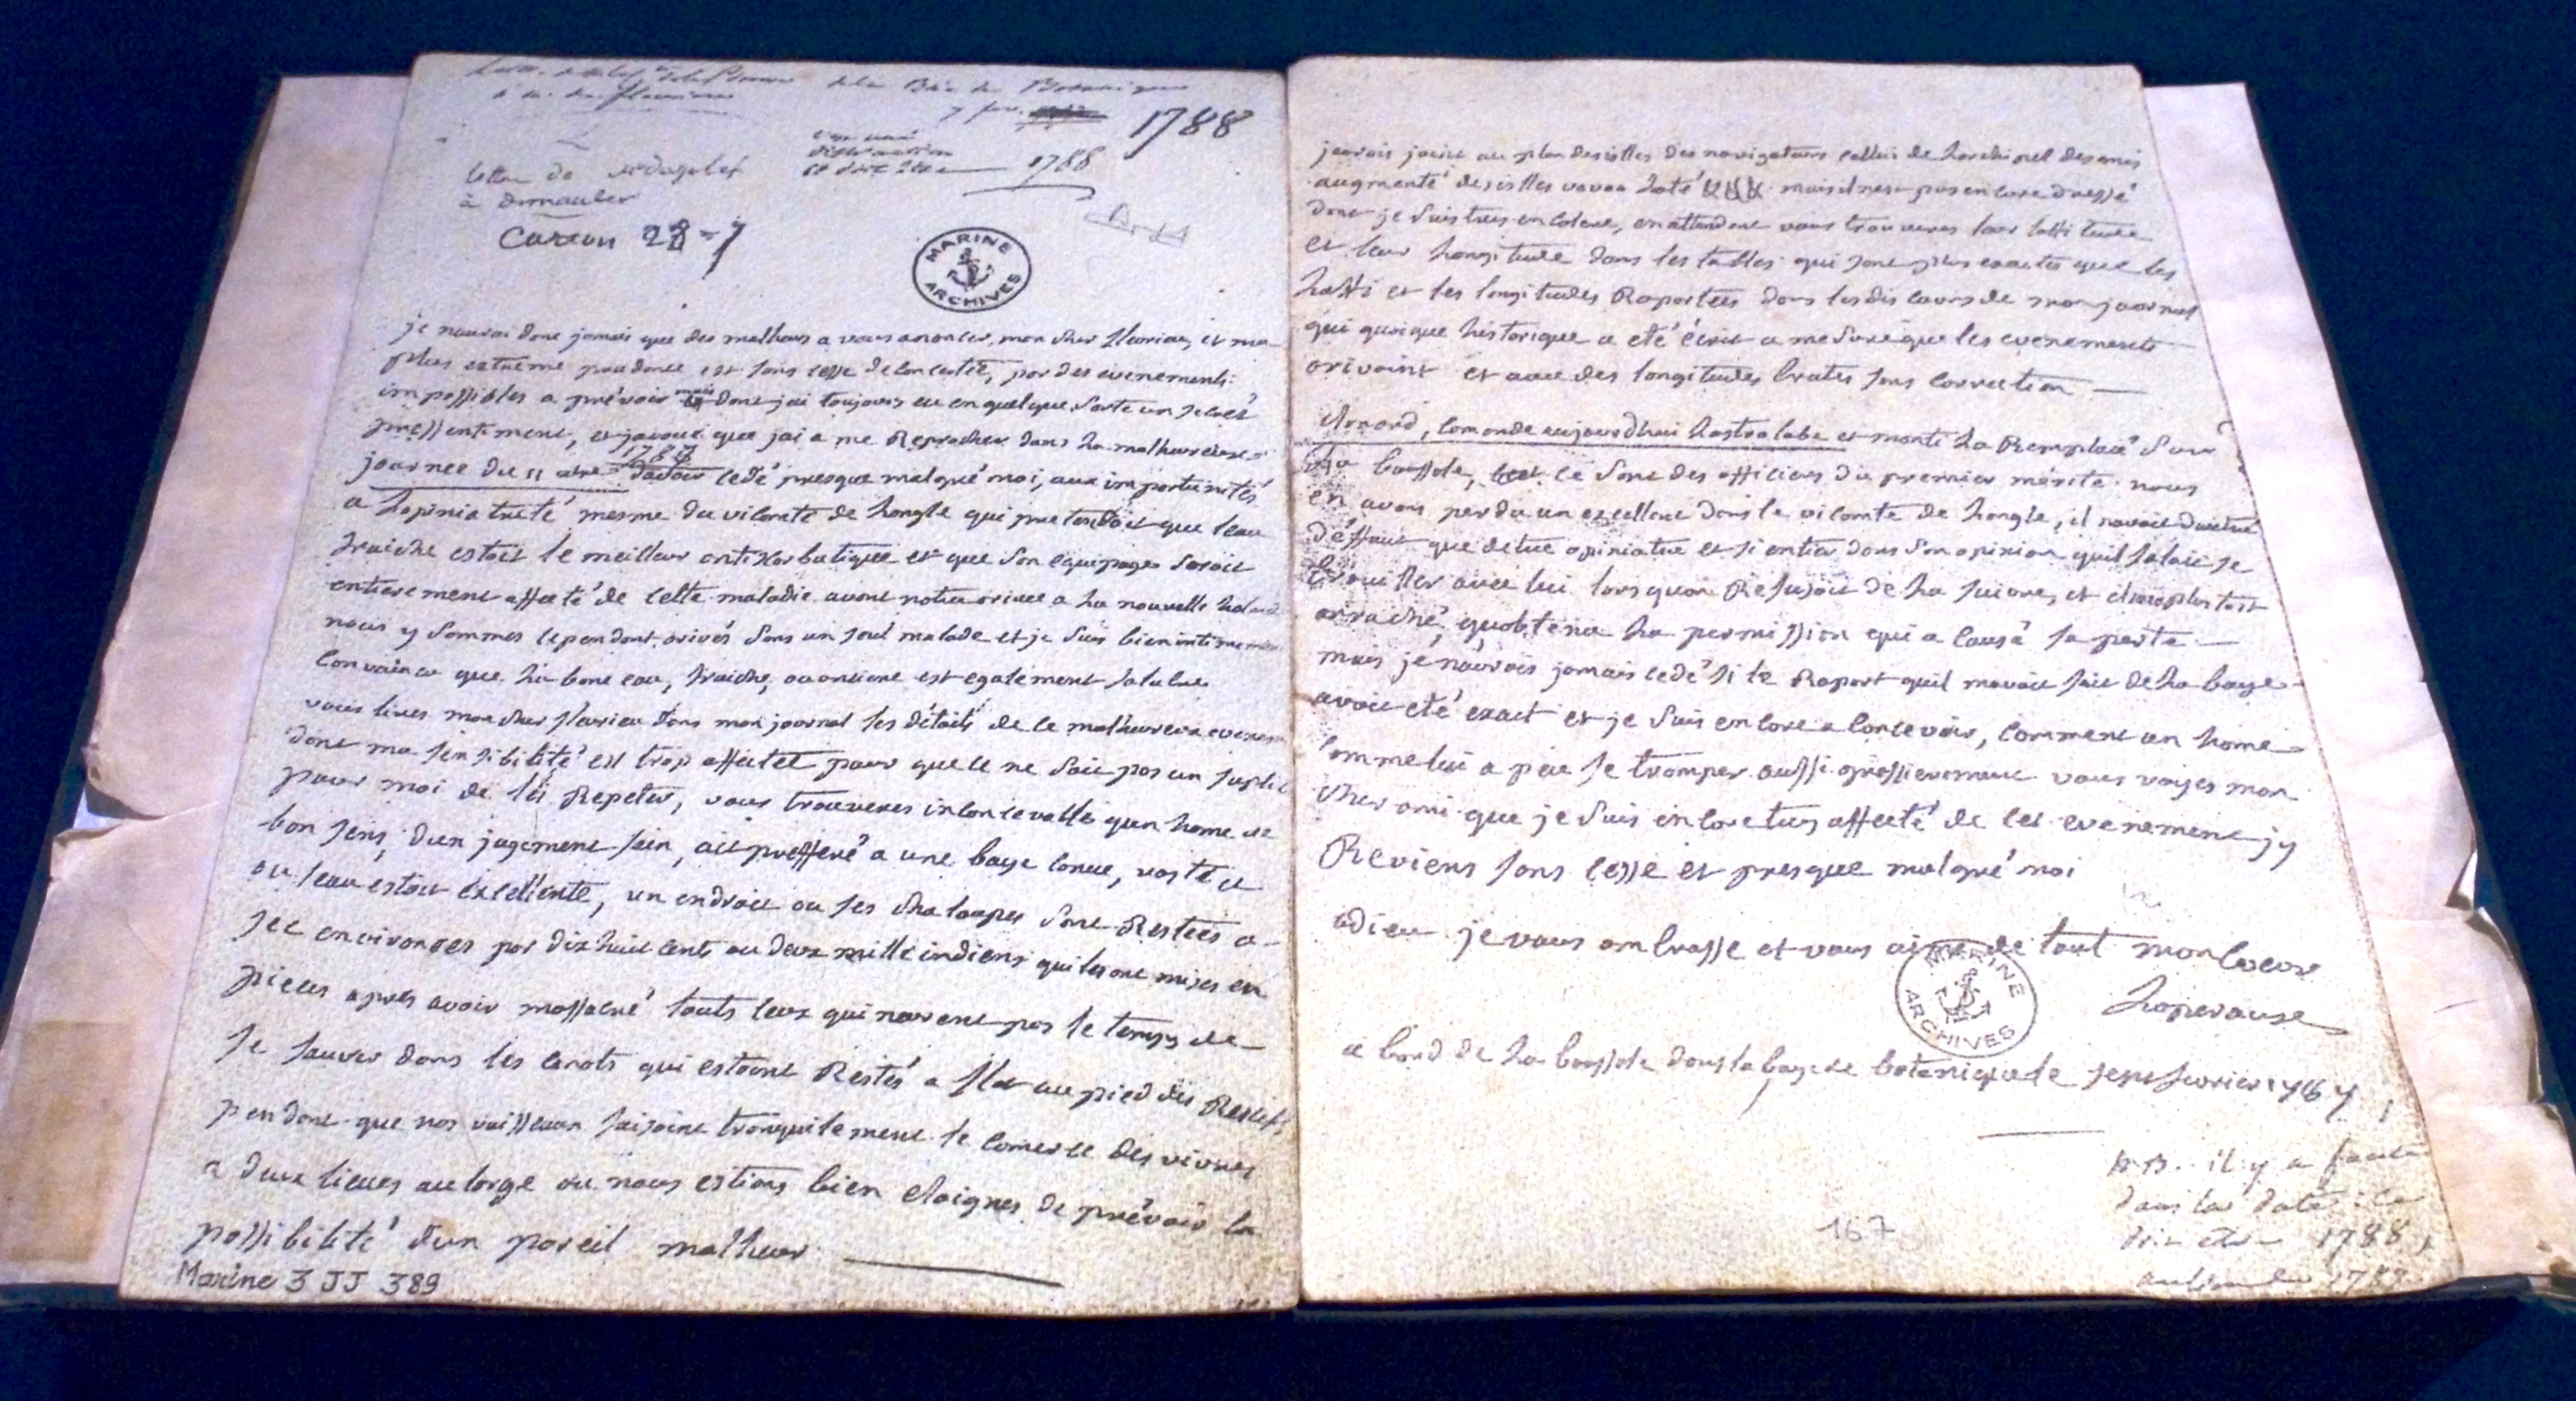 de la Baie de Botanique
7 fev.
1788
1788
lettre de
à
Carton 22-7
MARINE ARCHIVES
je naurai donc jamais que des malheurs a vous anoncer, mon cher fleurieu, et ma
plus extreme prudence est sans cesse deconcertée, par des evenements
impossibles a prévoir mais dont jai toujours eu en quelque sorte un secret
pressentiment, et javoue que jai a me Reprocher dans la malheureuse
journee du 11 xbre 1787 davoir cedé presque malgré moi, aux importunités
a lopiniatreté mesme du vicomte de Langle qui pretendoit que leau
fraiche estoit le meilleur antiscorbutique et que son equipage seroit
entierement affecté de cette maladie avant notre arivee a la nouvelle
nous y sommes cependant arivés sans un seul malade et je suis bien intimement
convaincu que la bone eau, fraiche, ou anciene est egalement salubre
vous lires mon cher fleurieu dans mon journal les détails de ce malheureux
dont ma sensibilité est trop affectee pour que ce ne soit pas un
pour moi de les Repeter, vous trouveres inconcevable qun home de
bon sens, dun jugement sain, ait prefferé a une baye conue, vaste et
ou leau estoit excellente, un endroit ou ses chaloupes sont Restées a
sec environees par dix huit cents ou deux mille indiens qui les ont mises en
pieces apres avoir massacré touts ceux qui neurent pas le temps de
se sauver dans les canots qui estoint Restés a flot au pied des Rescifs
pendant que nos vaisseaux faisoint tranquilement le comerce des vivres
a deux lieues au large ou nous estions bien eloignes de prévoir la
possibilité dun pareil malheur
Marine 3 JJ 389
jaurais joint au plan des isles des navigateurs cellui de larchipel des amis
augmenté des isles vavao mais il nest pas encore dressé
dont je suis tres en colere, en attendant vous trouveres leur lattitude
et leur longitude dans les tables qui sont plus exactes que les
latti et les longitudes Raportees dans les discours de mon journal
qui quoique historique a eté écrit a mesure que les evenements
arivoint et avec des longitudes brutes sans correction
clonard, comande aujourdhui lastrolabe et monti la Remplacé sur
la boussole, ce sont des officiers du premier mérite nous
en avons perdu un excellent dans le vicomte de Langle, il navoit dautre
déffaut que detre opiniatre et si entier dans son opinion quil falait se
brouiller avec lui lorsquon Refusoit de la suivre, et il ma plus tost
arraché, quobtenu la permission qui a causé sa perte
mais je naurois jamais cedé si le Raport quil mavoit fait de la baye
avoit eté exact et je suis encore a concevoir, coment un home
comme lui a peu se tromper aussi grossierement vous voyes mon
cher ami que je suis encore tres affecté de cet evenement jy
Reviens sans cesse et presque malgré moi
adieu je vous ambrasse et vous aime de tout mon coeur
Laperouse
MARINE ARCHIVES
a bord de la boussole dans la baye de botanique le sept fevrier 1787
N.B. il y a faute
dans la date : ce
doit etre 1788,
au lieu de 1787.
167